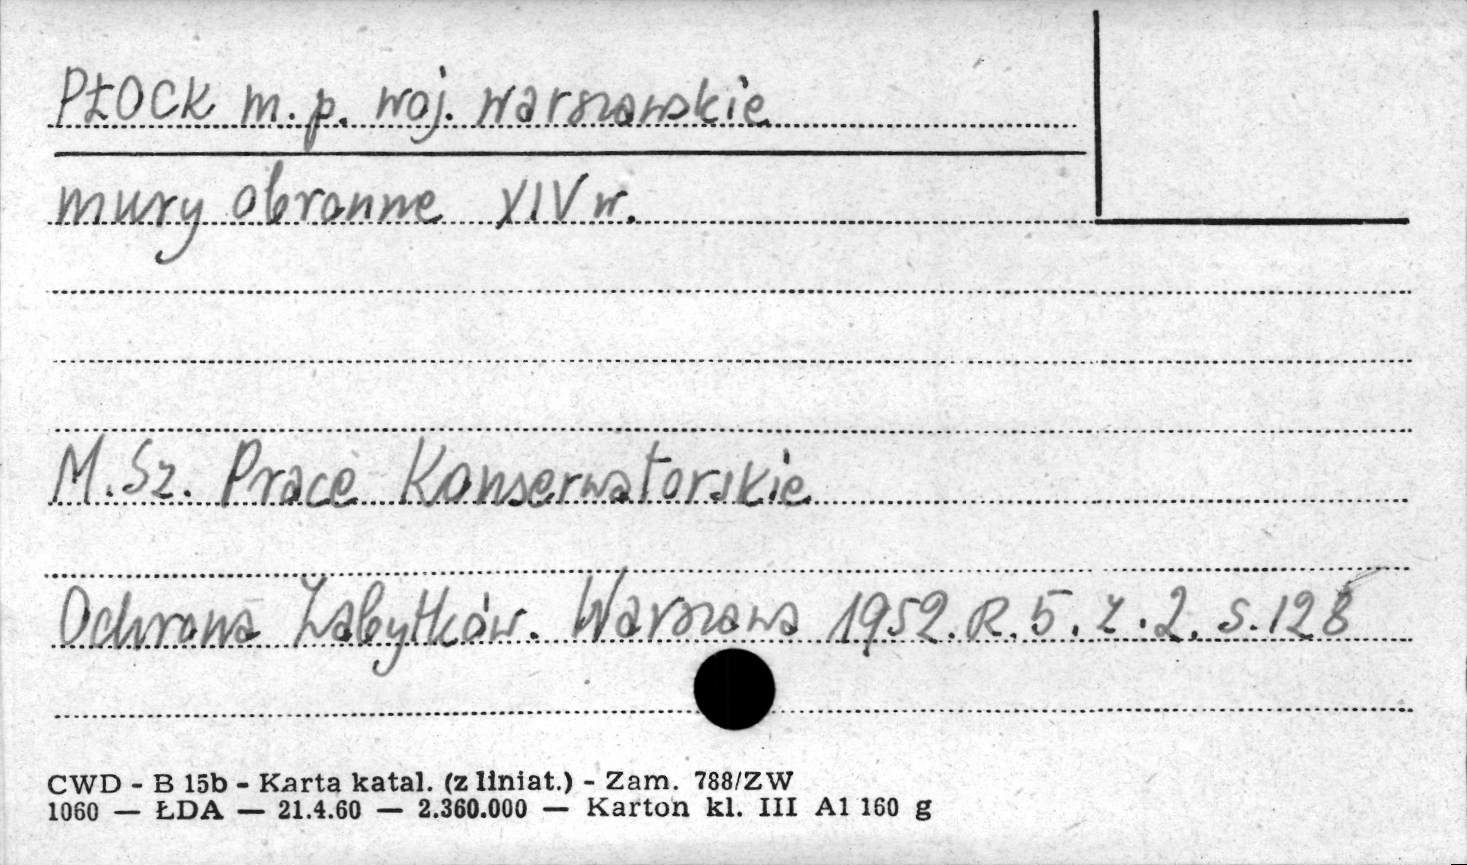 PŁOCK m.p. woj. warszawskie
mury obronne XIV w.
M.Sz. Prace Konserwatorskie
Ochrona Zabytków. Warszawa 1952. R.5. z.2. s.128
CWD - B 15b - Karta katal. (z liniat.) - Zam. 788/ZW
1060 — ŁDA — 21.4.60 — 2.360.000 — Karton kl. III A1 160 g